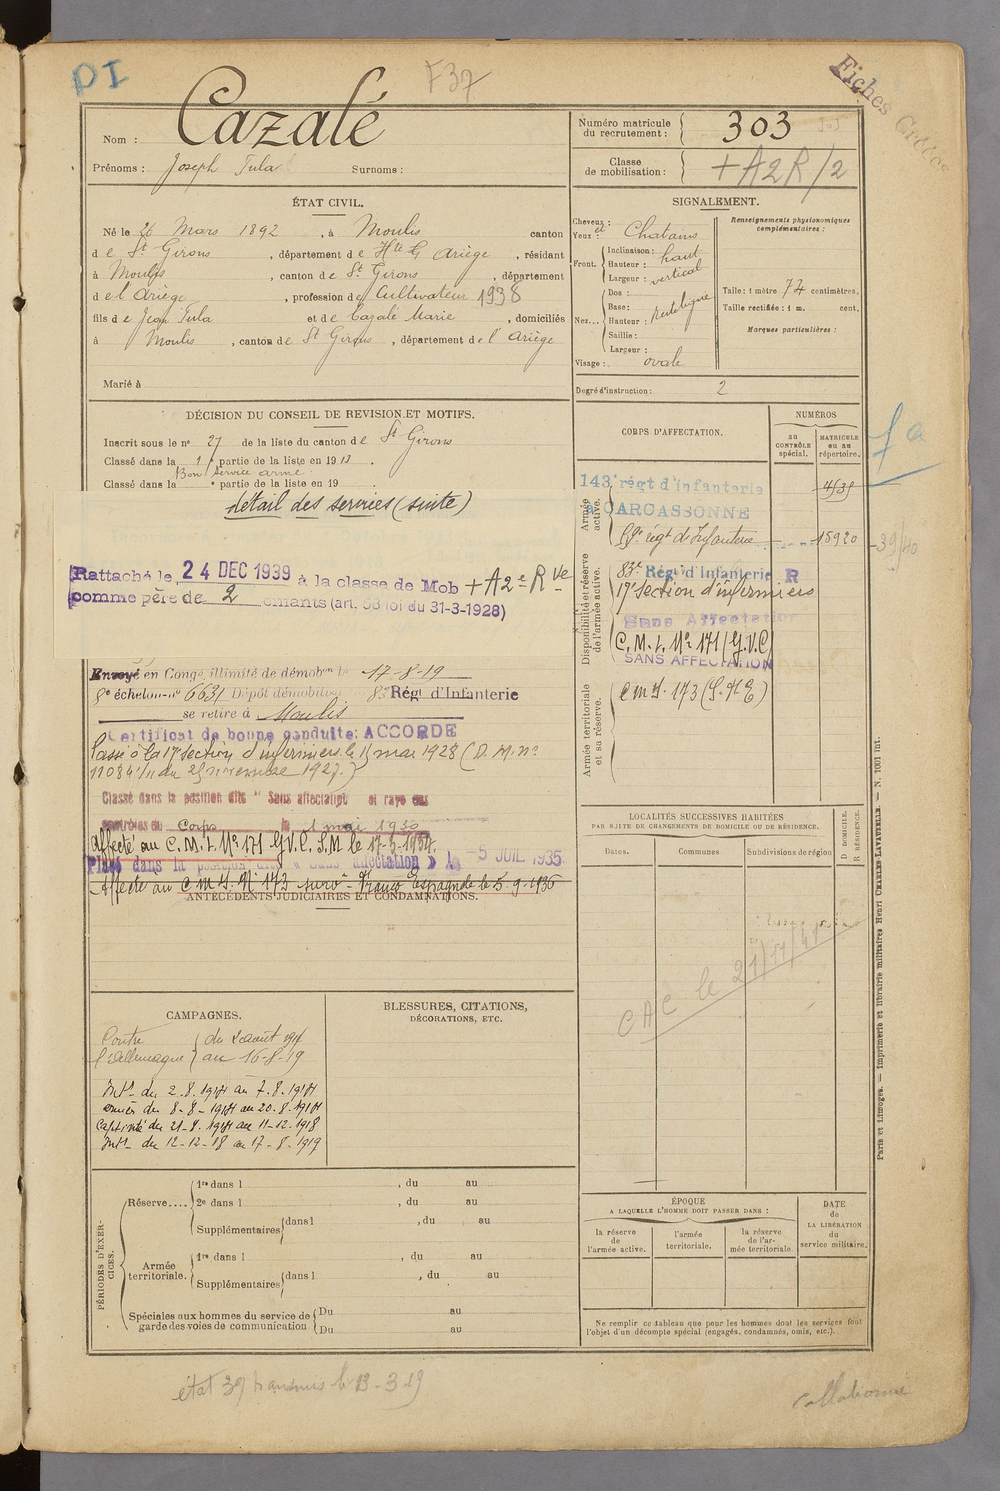 DI
F37
Fiches Créées
Nom : Cazalé
Prénoms : Joseph Tula Surnoms :
Numéro matricule du recrutement : 303
Classe de mobilisation : + A2R/2
ÉTAT CIVIL.
Né le 26 Mars 1892, à Moulis canton
de St Girons, département de Hte G Ariège, résidant
à Moulis, canton de St Girons, département
de l'Ariège, profession de Cultivateur 1938
fils de Jean Tula et de Cazalé Marie, domiciliés
à Moulis, canton de St Girons, département de l'Ariège
Marié à
SIGNALEMENT.
Cheveux : et
Yeux : Chatains
Front. Inclinaison : haut
Hauteur :
Largeur : vertical
Nez... Dos :
Base :
Hauteur : rectiligne
Saillie :
Largeur :
Visage : ovale
Renseignements physionomiques complémentaires :
Taille : 1 mètre 74 centimètres.
Taille rectifiée : 1 m. cent.
Marques particulières :
Degré d'instruction : 2
DÉCISION DU CONSEIL DE REVISION ET MOTIFS.
Inscrit sous le n° 27 de la liste du canton de St Girons
Classé dans la 1e partie de la liste en 1913.
Bon service armé.
Classé dans la e partie de la liste en 19 .
détail des services (suite)
Rattaché le 24 DEC 1939 à la classe de Mob + A2e Rve
comme père de 2 enfants (art. 58 loi du 31-3-1928)
Envoyé en Congé illimité de démobon le 17-8-19
8e échelon n° 6631 Dépôt démobilisr 83 Régt d'Infanterie
se retire à Moulis
Certificat de bonne conduite: ACCORDÉ
Passé à la 17e section d'infirmiers le 1er mai 1928 (D. M. n°
11084 1/11 du 25 novembre 1927.)
Classé dans la position dite " Sans affectation et rayé des
contrôles du Corps le 1 mai 1930
Affecté au C.M.I. No 171 G.V.C. S.M le 17-3-1934.
Placé dans la position dite « Sans affectation » le 5 JUIL 1935
Affecté au C.M.I. No 173 Franco Espagnole le 5.9.1936
ANTÉCÉDENTS JUDICIAIRES ET CONDAMNATIONS.
CORPS D'AFFECTATION.
NUMÉROS
AU CONTRÔLE spécial.
MATRICULE ou au répertoire.
Armée active.
143e régt d'infanterie 4535
à CARCASSONNE
régt d'Infanterie 15920
39/40
fa
Disponibilité et réserve de l'armée active.
83e Régt d'Infanterie R
17e section d'infirmiers
Sans Affectation
C.M.I. No 171 (G.V.C)
SANS AFFECTATION
Armée territoriale et sa réserve.
CMI. 173
LOCALITÉS SUCCESSIVES HABITÉES
PAR SUITE DE CHANGEMENTS DE DOMICILE OU DE RÉSIDENCE.
Dates. Communes Subdivisions de région D DOMICILE. R RÉSIDENCE.
CAC le 21/11/41
CAMPAGNES.
Contre du 2 août 1914
l'Allemagne au 16-8-19
Intr du 2.8.1914 au 7.8.1914
armées du 8-8-1914 au 20.8.1914
Captivité du 21-8.1914 au 11-12.1918
Intr du 12-12-18 au 17-8-1919
BLESSURES, CITATIONS,
DÉCORATIONS, ETC.
PÉRIODES D'EXERCICES.
Réserve.... 1re dans l , du au
2e dans l , du au
Supplémentaires dans l , du au
Armée territoriale. 1re dans l , du au
Supplémentaires dans l , du au
Spéciales aux hommes du service de garde des voies de communication Du au
Du au
ÉPOQUE
A LAQUELLE L'HOMME DOIT PASSER DANS :
la réserve de l'armée active.
l'armée territoriale.
la réserve de l'armée territoriale.
DATE de LA LIBÉRATION du service militaire.
Ne remplir ce tableau que pour les hommes dont les services font
l'objet d'un décompte spécial (engagés, condamnés, omis, etc.).
Paris et Limoges. — Imprimerie et librairie militaires Henri CHARLES-LAVAUZELLE. — N. 1001 int.
état 39 transmis le 13-3-19
Collationné